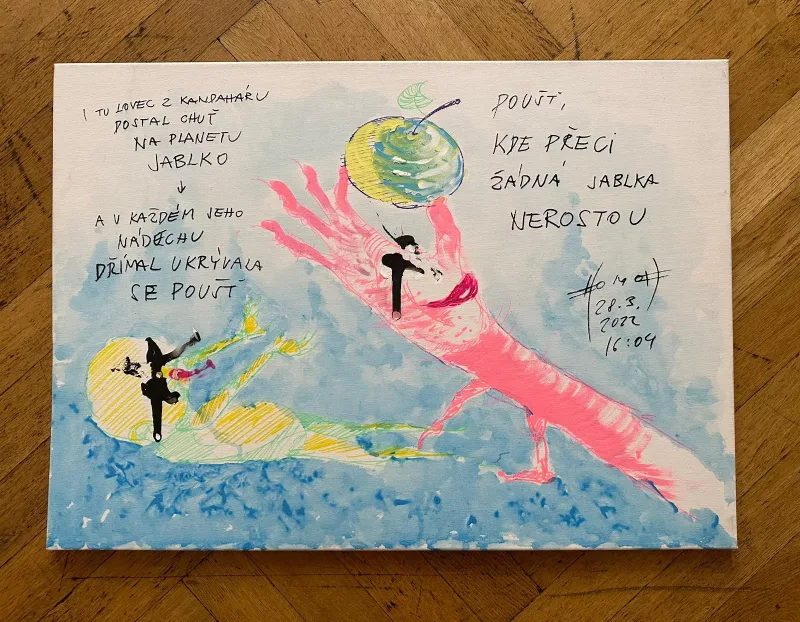 I TU LOVEC Z KANDAHÁRU
DOSTAL CHUŤ
NA PLANETU
JABLKO
↓
A V KAŽDÉM JEHO
NÁDECHU
DŘÍMAL UKRÝVALA
SE POUŠŤ
POUŠŤ,
KDE PŘECI
ŽÁDNÁ JABLKA
NEROSTOU
28.3.
2022
16:04